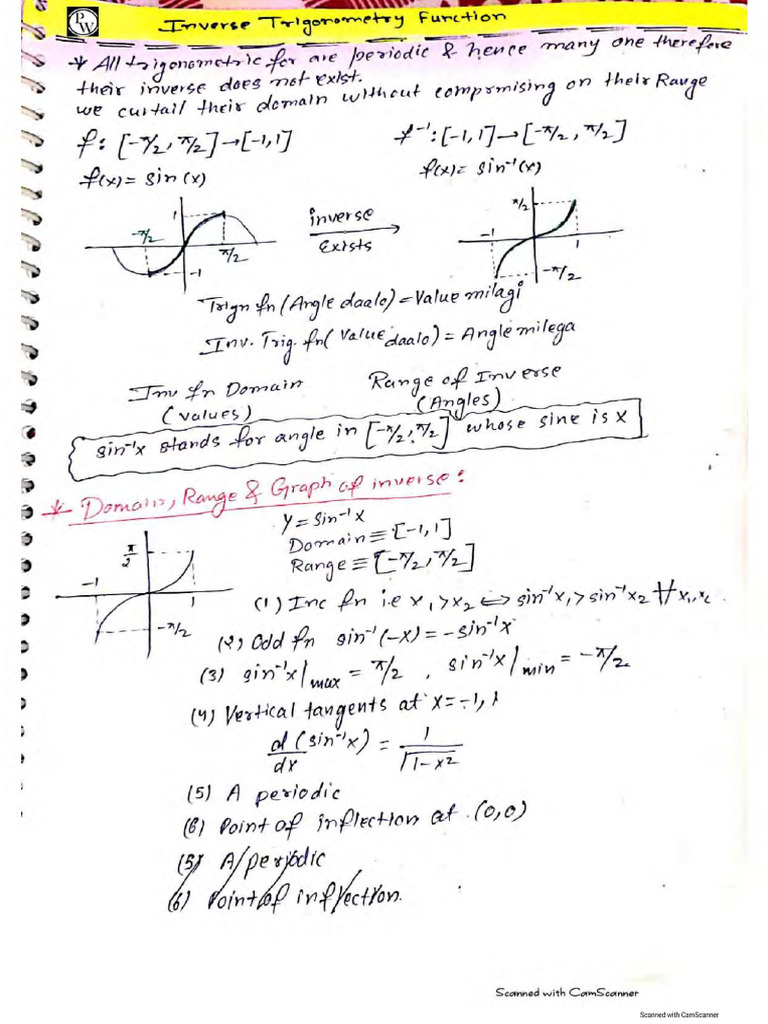 PW
Inverse Trigonometry Function
* All trigonometric fn are periodic & hence many one therefore
their inverse does not exist.
we curtail their domain without compromising on their Range
f: [-π/2, π/2] → [-1, 1]
f⁻¹: [-1, 1] → [-π/2, π/2]
f(x) = sin (x)
f(x) = sin⁻¹(x)
1
-π/2
π/2
-1
inverse
Exists
π/2
-1
1
-π/2
Trign fn (Angle daalo) = Value milagi
Inv. Trig. fn (Value daalo) = Angle milega
Inv fn Domain
(values)
Range of Inverse
(Angles)
sin⁻¹x stands for angle in [-π/2, π/2] whose sine is x
* Domain, Range & Graph of inverse :
π/2
-1
1
-π/2
y = sin⁻¹x
Domain ≡ [-1, 1]
Range ≡ [-π/2, π/2]
(1) Inc fn i.e x₁ > x₂ ⇔ sin⁻¹x₁ > sin⁻¹x₂ ∀ x₁, x₂
(2) Odd fn sin⁻¹(-x) = -sin⁻¹x
(3) sin⁻¹x|max = π/2 , sin⁻¹x|min = -π/2
(4) Vertical tangents at x = -1, 1
d/dx (sin⁻¹x) = 1/√1-x²
(5) A periodic
(6) Point of inflection at (0,0)
(5) A periodic
(6) Point of inflection.
Scanned with CamScanner
Scanned with CamScanner